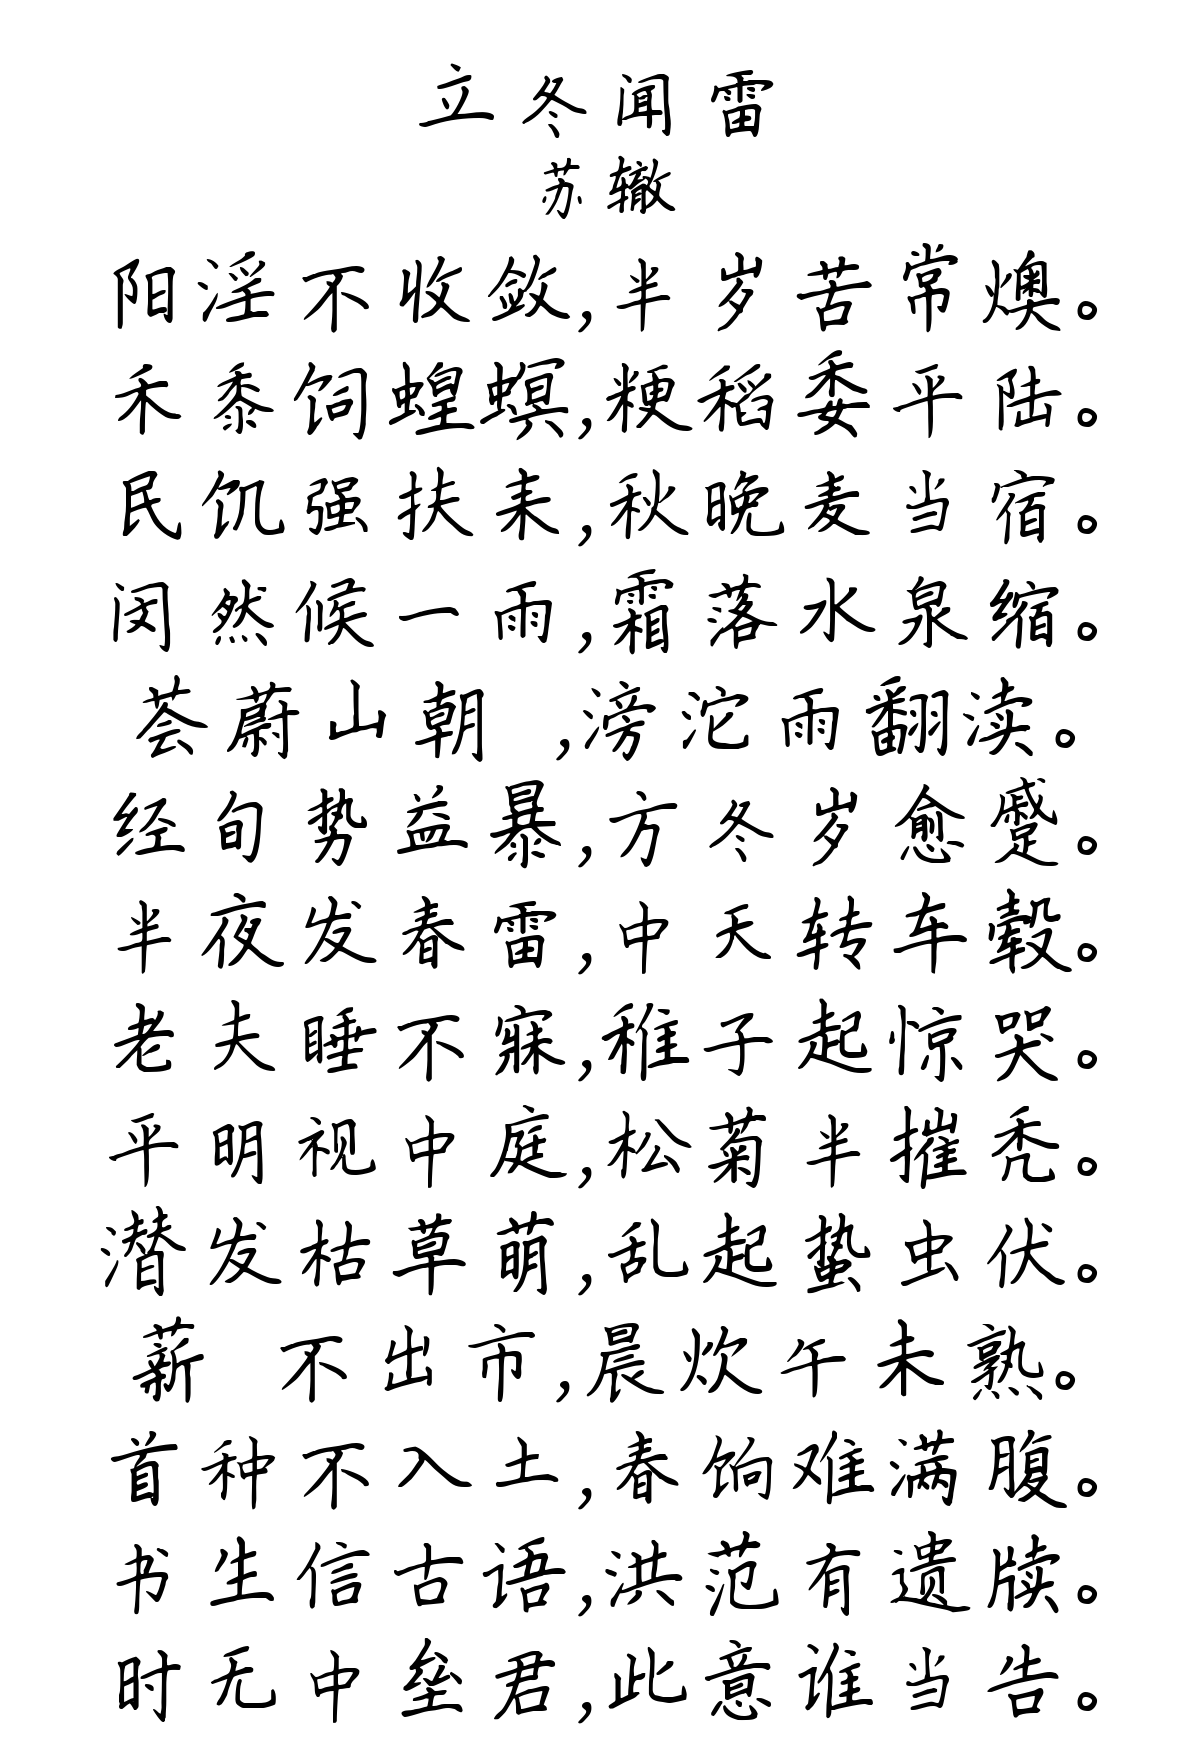 立冬闻雷
苏辙
阳淫不收敛,半岁苦常燠。
禾黍饲蝗螟,粳稻委平陆。
民饥强扶耒,秋晚麦当宿。
闵然候一雨,霜落水泉缩。
荟蔚山朝 ,滂沱雨翻渎。
经旬势益暴,方冬岁愈蹙。
半夜发春雷,中天转车毂。
老夫睡不寐,稚子起惊哭。
平明视中庭,松菊半摧秃。
潜发枯草萌,乱起蛰虫伏。
薪 不出市,晨炊午未熟。
首种不入土,春饷难满腹。
书生信古语,洪范有遗牍。
时无中垒君,此意谁当告。